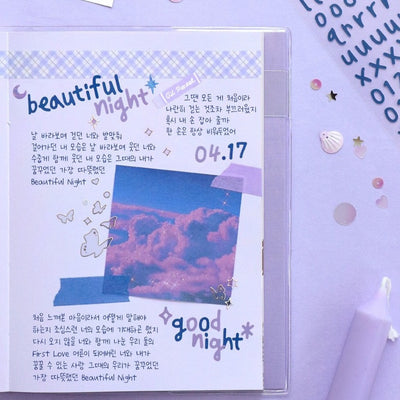 beautiful
night
그땐 모든 게 처음이라
나란히 걷는 것조차 부끄러웠지
혹시 내 손 잡아 줄까
한 손은 항상 비워두었어
04.17
날 바라보며 걷던 너와 발맞춰
걸어가던 내 모습은 날 바라보며 웃던 너와
수줍게 함께 웃던 내 모습은 그때의 내가
꿈꾸었던 가장 따뜻했던
Beautiful Night ♡
처음 느껴본 마음이라서 어떻게 말해야
하는지 조심스런 너의 모습에 기대하곤 했지
다시 오지 않을 너와 함께 나눈 우리 둘의
First Love 어른이 되어버린 너와 내가
꿈꿀 수 있는 사랑 그때의 우리가 꿈꾸었던
가장 따뜻했던 Beautiful Night
good
night*